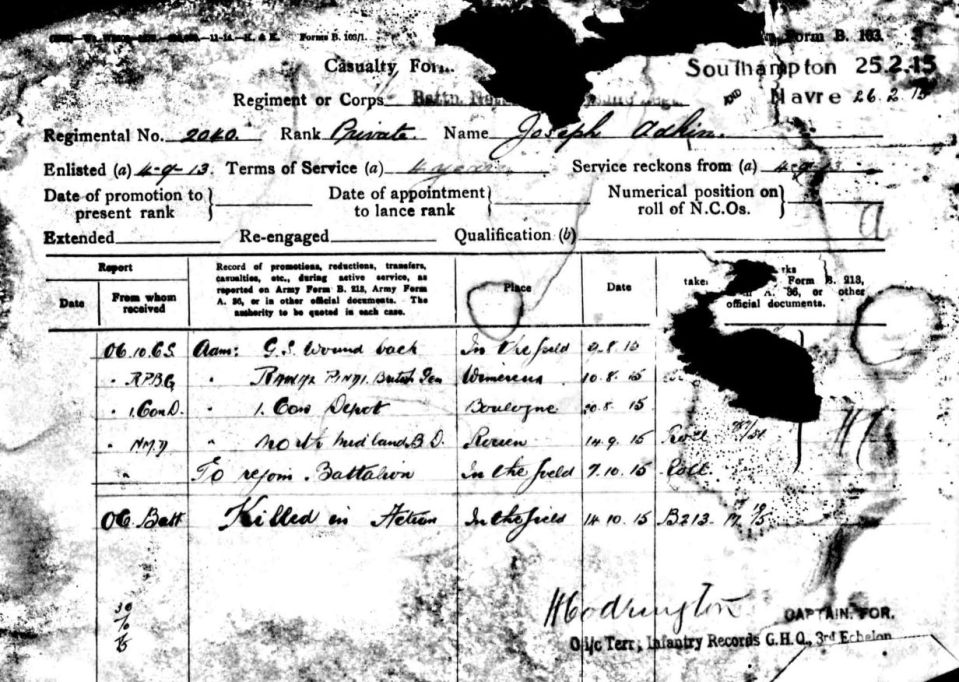 Forms B. 103/1. Form B. 103.
Casualty Form.
Southampton 25.2.15
Regiment or Corps Battn AND Havre 26.2.15
Regimental No. 2040. Rank Private. Name Joseph Adkin.
Enlisted (a) 4-9-13. Terms of Service (a) 4 years. Service reckons from (a) 4-9-13.
Date of promotion to present rank } Date of appointment to lance rank } Numerical position on roll of N.C.Os. }
Extended Re-engaged Qualification (b)
Report
Date From whom received
Record of promotions, reductions, transfers, casualties, etc., during active service, as reported on Army Form B. 213, Army Form A. 36, or in other official documents. The authority to be quoted in each case.
Place
Date
Form B. 213, A. 36, or other official documents.
OC. 10. C.S. Adm: G.S. Wound back In the field 9.8.15
" RPBG " British Wimereux 10.8.15
" 1.Con D. " 1. Con Depot Boulogne 20.8.15
" " North Midland B.D. Rouen 14.9.15 Roll
" To rejoin Battalion In the field 7.10.15 Roll
OC. Batt Killed in Action In the field 14.10.15 B213.
CAPTAIN. FOR.
O i/c Terr; Infantry Records G.H.Q., 3rd Echelon